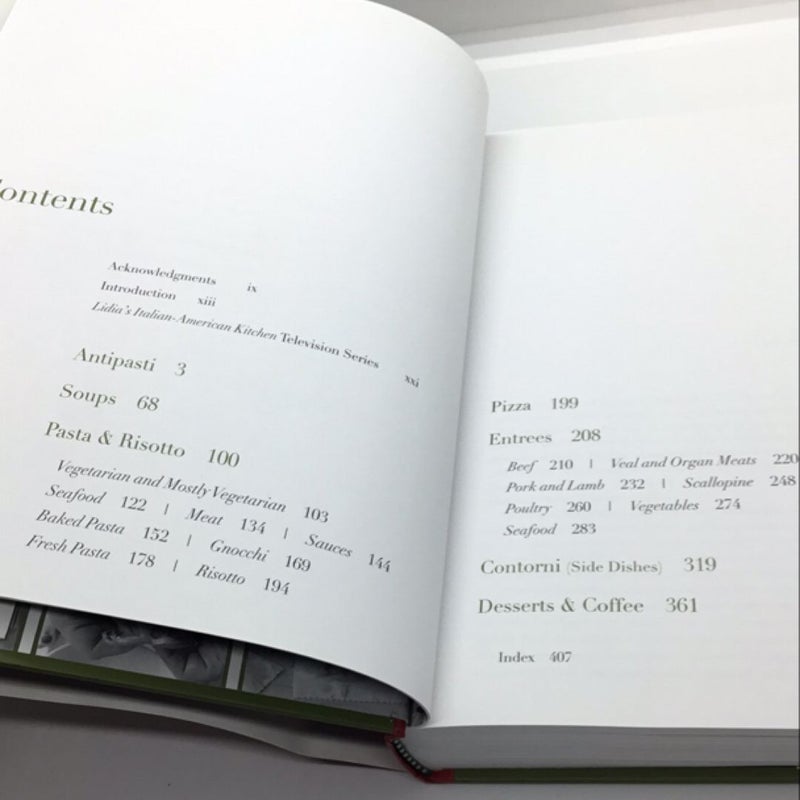 ontents
Acknowledgments ix
Introduction xiii
Lidia's Italian-American Kitchen Television Series xxi
Antipasti 3
Soups 68
Pasta & Risotto 100
Vegetarian and Mostly Vegetarian 103
Seafood 122 | Meat 134 | Sauces 144
Baked Pasta 152 | Gnocchi 169
Fresh Pasta 178 | Risotto 194
Pizza 199
Entrees 208
Beef 210 | Veal and Organ Meats 220
Pork and Lamb 232 | Scallopine 248
Poultry 260 | Vegetables 274
Seafood 283
Contorni (Side Dishes) 319
Desserts & Coffee 361
Index 407